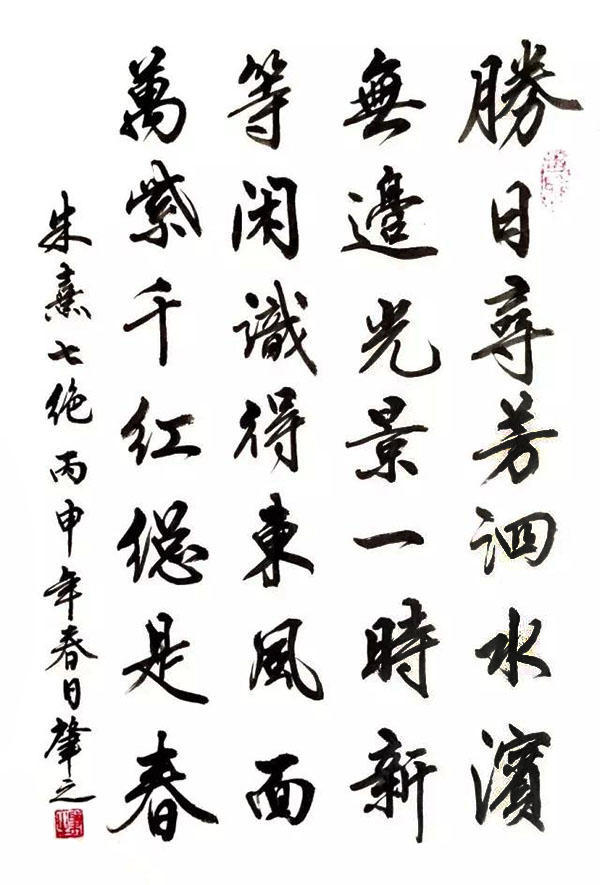 勝日尋芳泗水濱
無邊光景一時新
等闲識得東風面
萬紫千红總是春
朱熹七绝 丙申年春日肇之